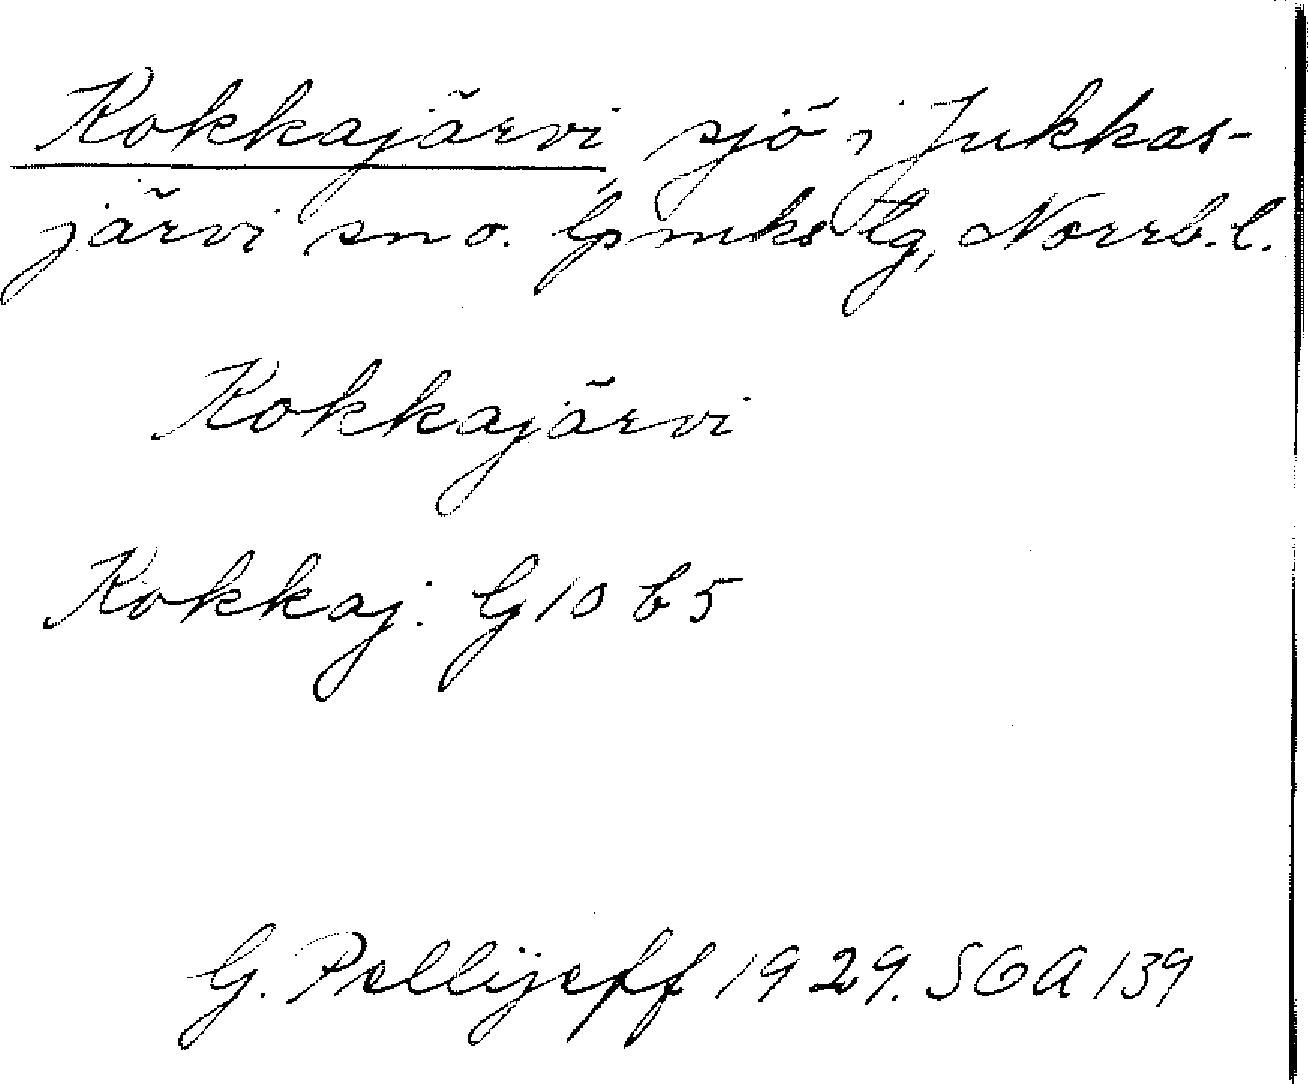 Kokkajärvi, sjö i Jukkas-
järvi sn o. lpmks tg, Norrb. l.
Kokkajärvi
Kokkaj: G 10 b 5
G. Pellijeff 1929. SOA 139